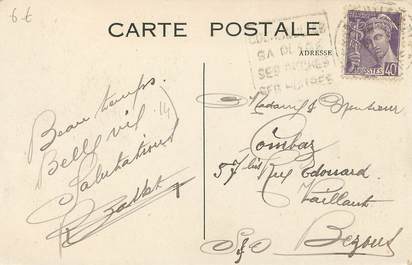 6 €
CARTE POSTALE
ADRESSE
SA PLAGE
SES
POSTES 40
Beau temps
Belle vie
Salutations
Madame & Monsieur
Combaz
57 bis Rue Edouard
Vaillant
Bezons
S&O